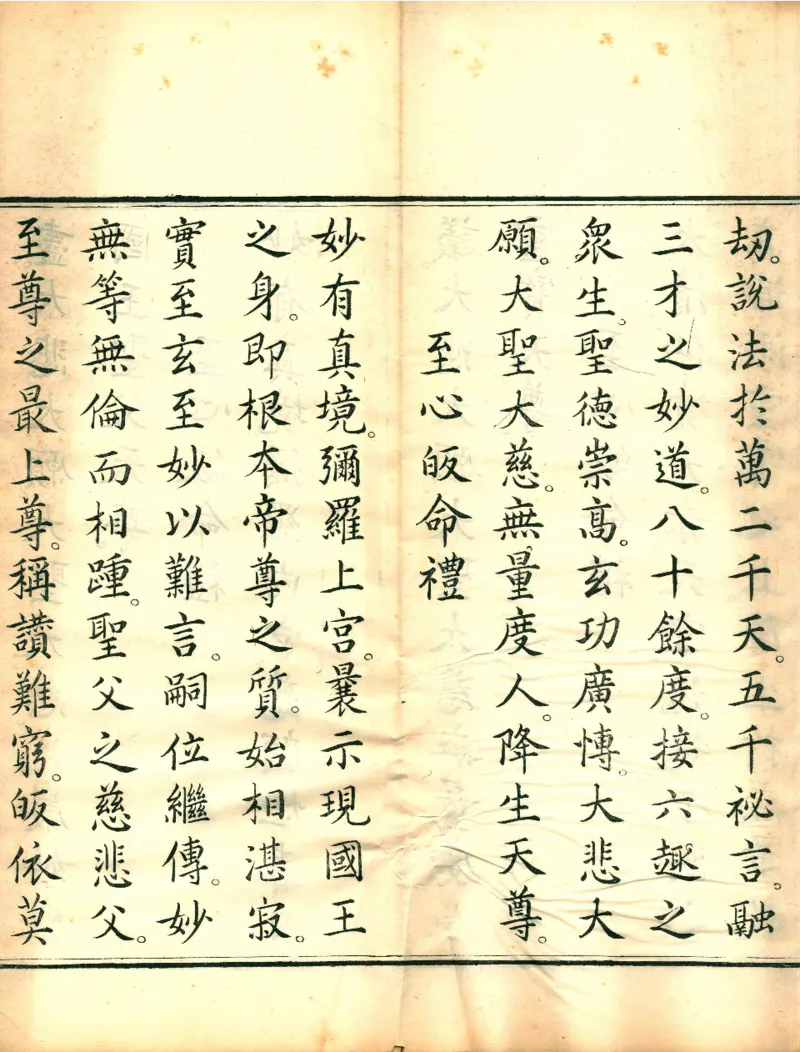 劫。說法於萬二千天。五千祕言。融
三才之妙道。八十餘度。接六趣之
衆生。聖德崇高。玄功廣愽。大悲大
願。大聖大慈。無量度人。降生天尊。
至心皈命禮
妙有真境。彌羅上宮。曩示現國王
之身。即根本帝尊之質。始相湛寂。
實至玄至妙以難言。嗣位繼傳。妙
無等無倫而相踵。聖父之慈悲父。
至尊之最上尊。稱讚難窮。皈依莫